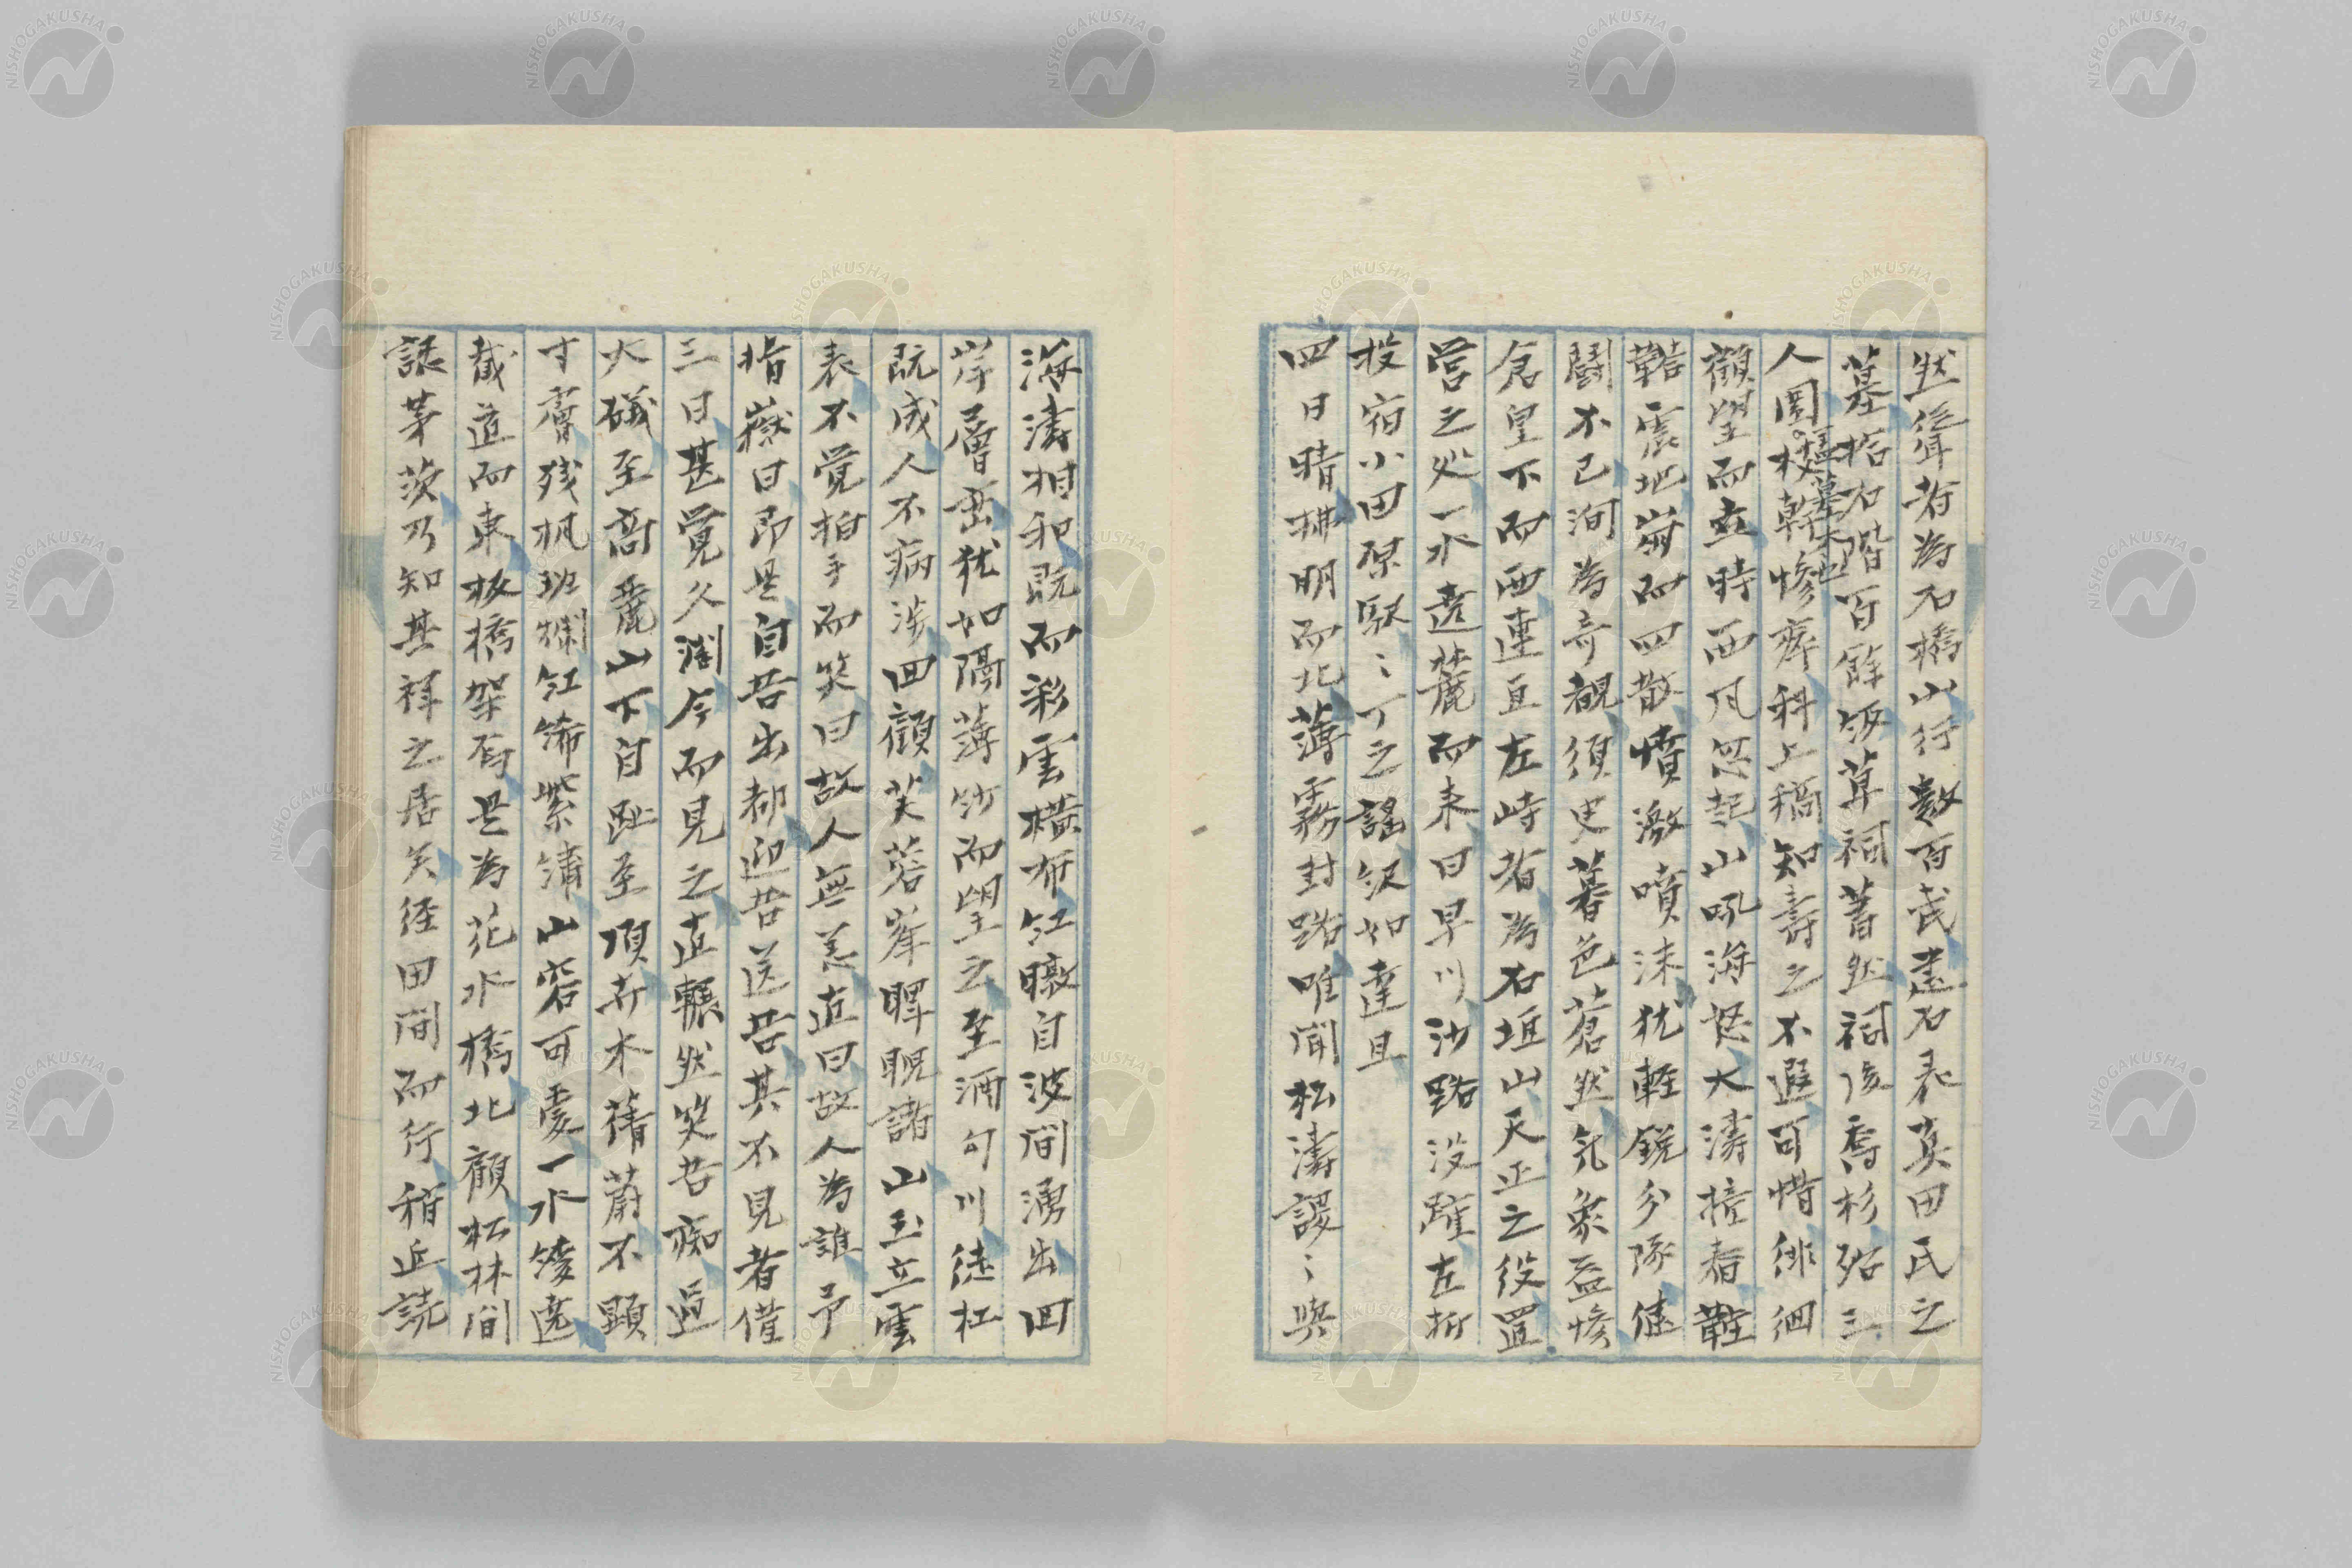 然從聳者為石橋山行數百武盡石表真田氏之
墓拾石階百餘級草祠蕭然祠後喬杉殆三
人圍枝幹慘瘁科上稿知壽之不遐可惜徘徊
顧望而立時西風忽起山吼海怒大濤撞舂鞺
鞳震地崩而四散憤激噴沫犹輕銳分隊健
鬪不已洵為奇観須臾暮色蒼然気象益慘
倉皇下而西連亘左峙者為石垣山天正之役置
営之処一水遶麓而来曰早川沙路没蹤左折
投宿小田原駅〻丁之謡吸如達旦
四日晴拂明而北薄霧封路唯聞松濤謖〻與
海濤相和既而彩雲横布紅暾自波間湧出回
岸層畳犹如隔薄紗而望之至酒匂川徒杠
既成人不病渉回顧芙蓉峯睥睨諸山玉立雲
表不覚拍手而笑曰故人無恙直曰故人為誰予
指嶽曰即是自吾出都迎吾送吾其不見者僅
三日甚覚久濶今而見之直囅然笑吾痴過
大磯至高麗山下自趾至頂卉木蒨蔚不顕
寸膚残楓斑斕紅綈紫繍山容可愛一水矮遶
截道而東板橋架焉是為花水橋北顧松林間
誅茅茨乃知其禅之居矣径田間而行稍近読
NISHOGAKUSHA